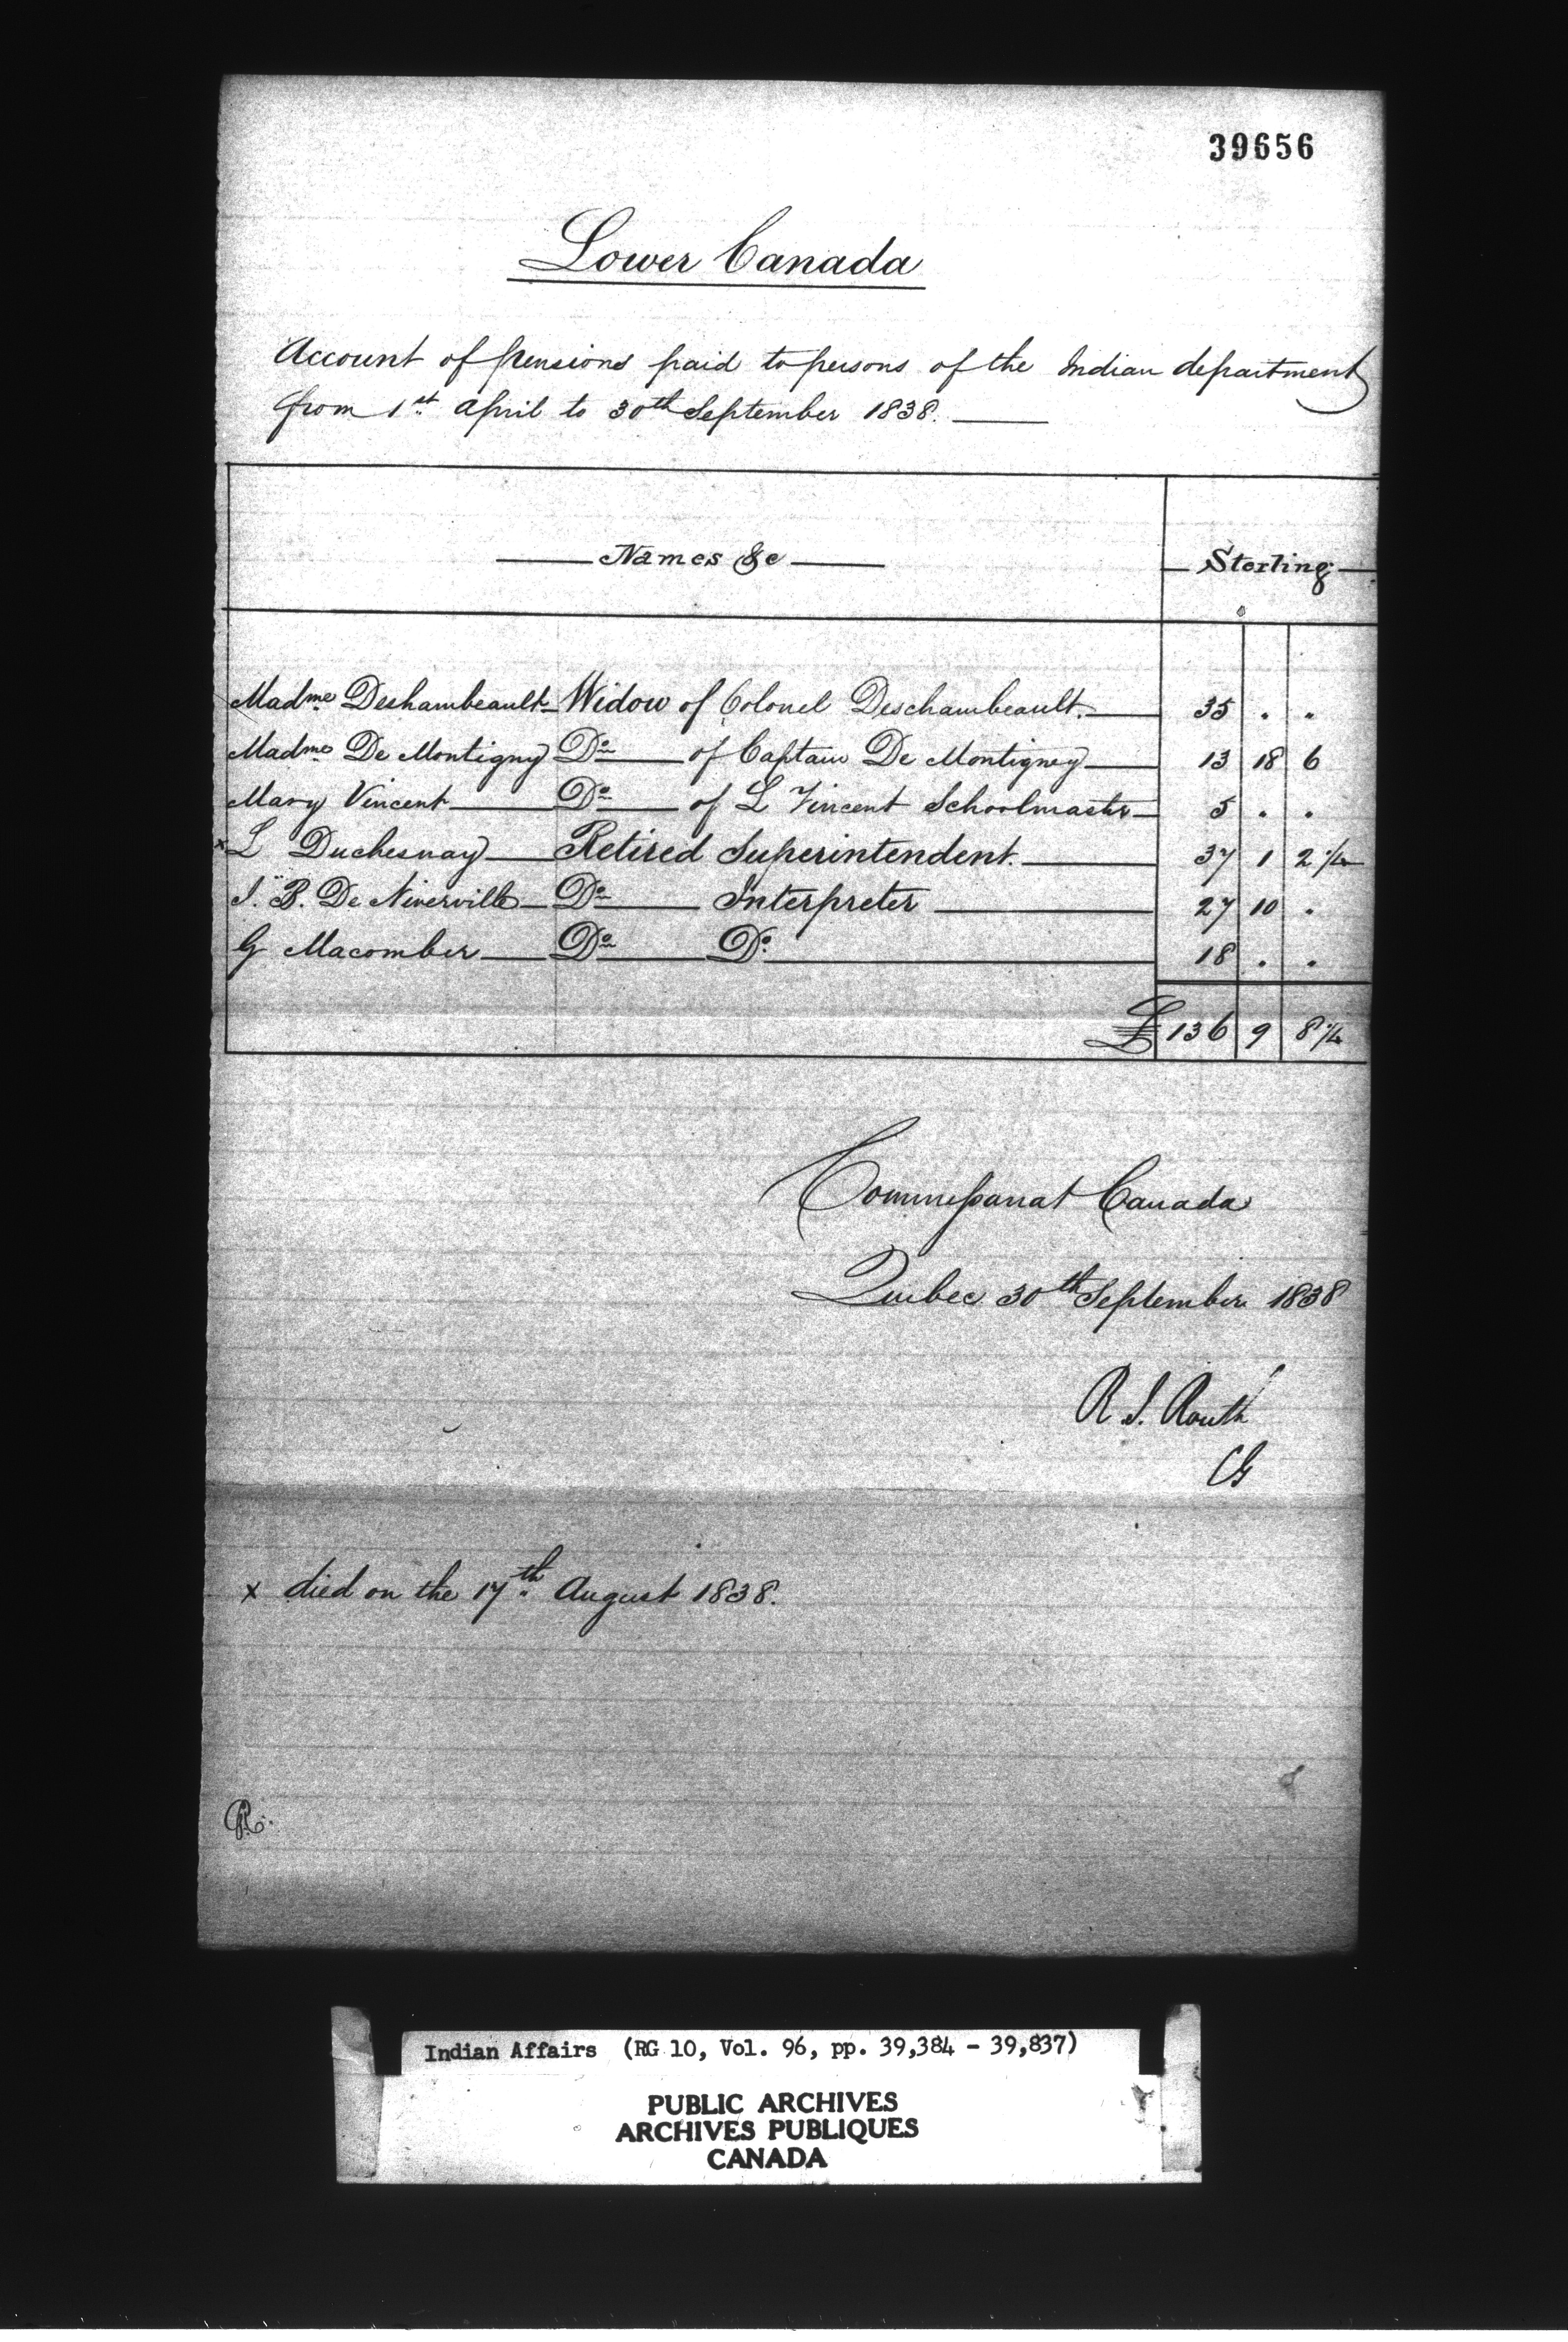 39656
Lower Canada
Account of pensions paid to persons of the Indian department
from 1st April to 30th September 1838.
Names &c Sterling
Madme Deshambeault Widow of Colonel Deschambeault. 35 . .
Madme De Montigny Do of Captain De Montigny 13 18 6
Mary Vincent Do of L Vincent Schoolmaster 5 . .
x L Duchesnay Retired Superintendent. 37 1 2 1/4
J. B. De Niverville Do Interpreter 27 10 .
G Macomber Do Do 18 . .
£ 136 9 8 1/4
Commissariat Canada
Quebec 30th September 1838
R I. Routh
CG
x died on the 17th August 1838.
Indian Affairs (RG 10, Vol. 96, pp. 39,384 - 39,837)
PUBLIC ARCHIVES
ARCHIVES PUBLIQUES
CANADA